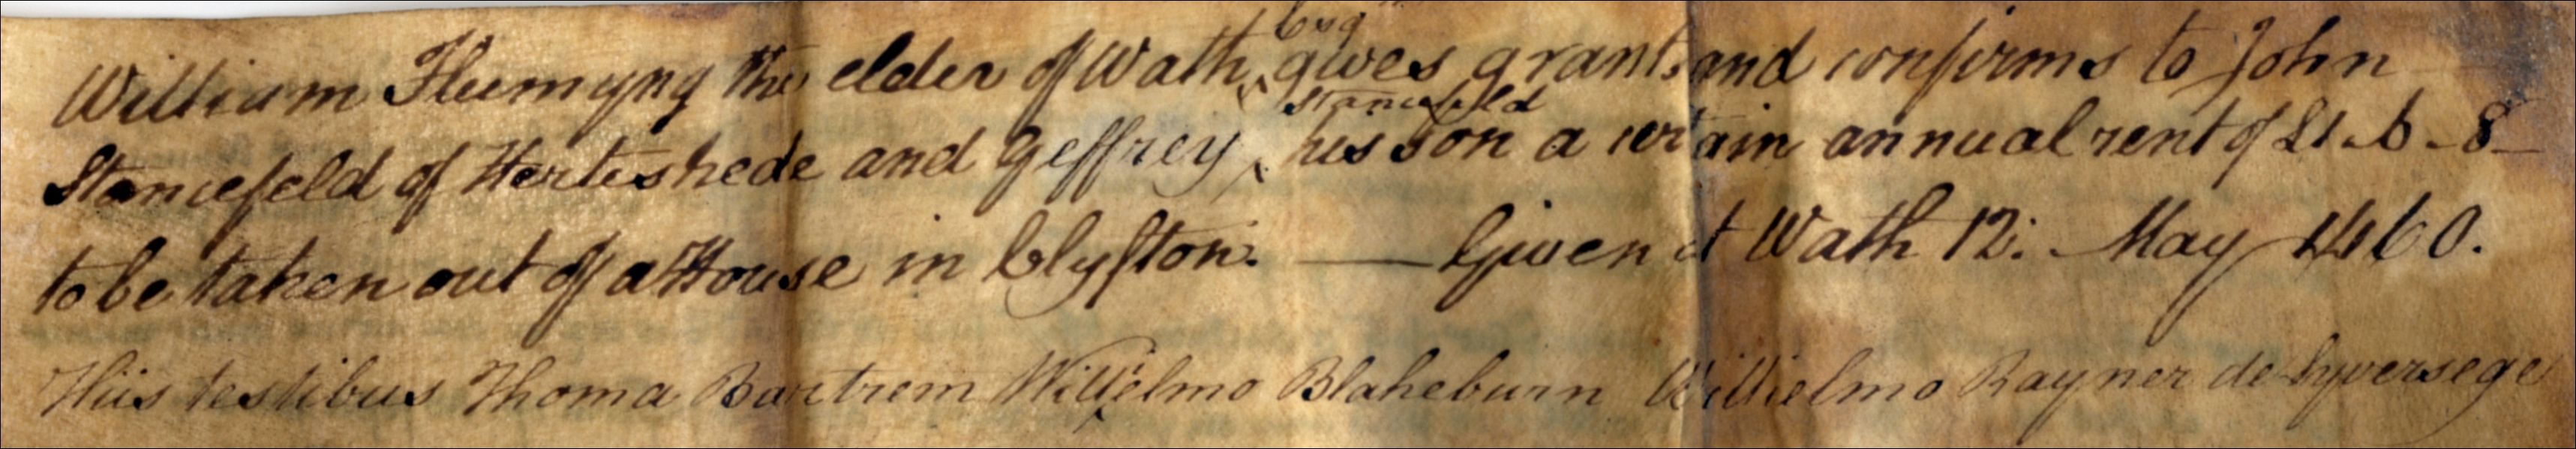 William Flemyng the elder of Wath Esq gives grants and confirms to John
Stancefeld of Herteshede and Geffrey Stancefeld his son a certain annual rent of £1 - 6 - 8 -
to be taken out of a House in Clyfton. — Given at Wath 12: May 1460.
Hiis testibus Thoma Bartrem Willielmo Blakeburn Willielmo Rayner de Lyversege